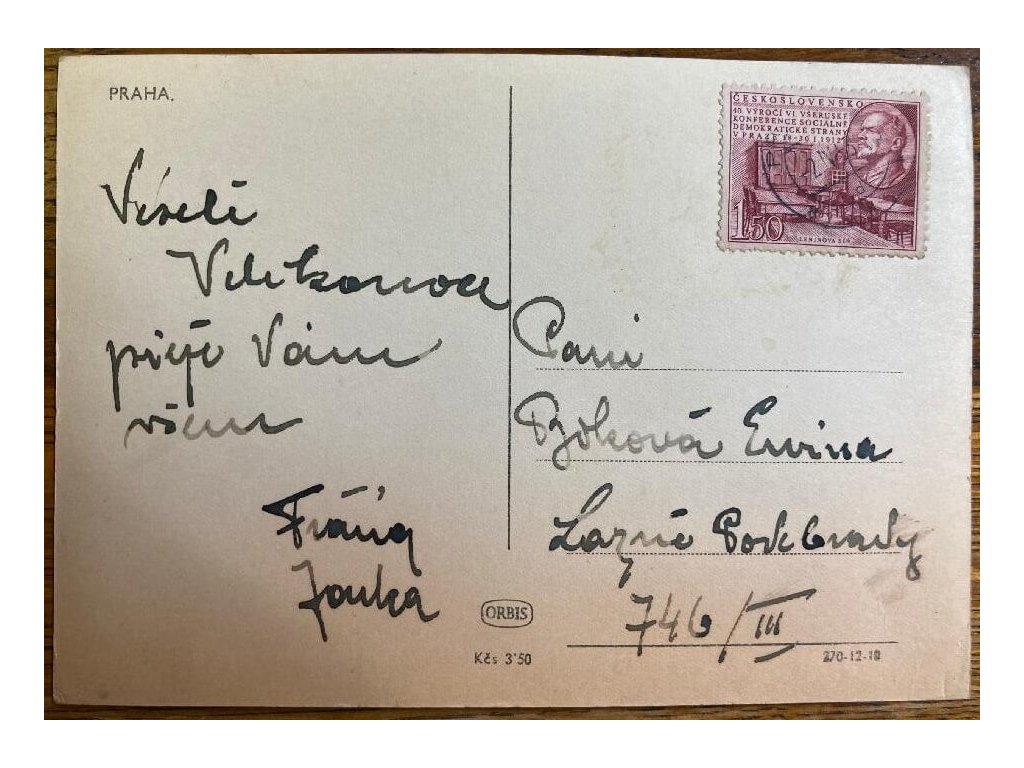 PRAHA.
Veselé
Velikonoce
přeje Vám
všem
Jouka
ČESKOSLOVENSKO
40. VÝROČÍ VI. VŠERUSKÉ
KONFERENCE SOCIÁLNĚ
DEMOKRATICKÉ STRANY
V PRAZE 18-30 I 1912
1,50
LENINOVA SÍŇ
Paní
Ervina
Lázně Poděbrady
746/III
ORBIS
Kčs 3'50
270-12-10